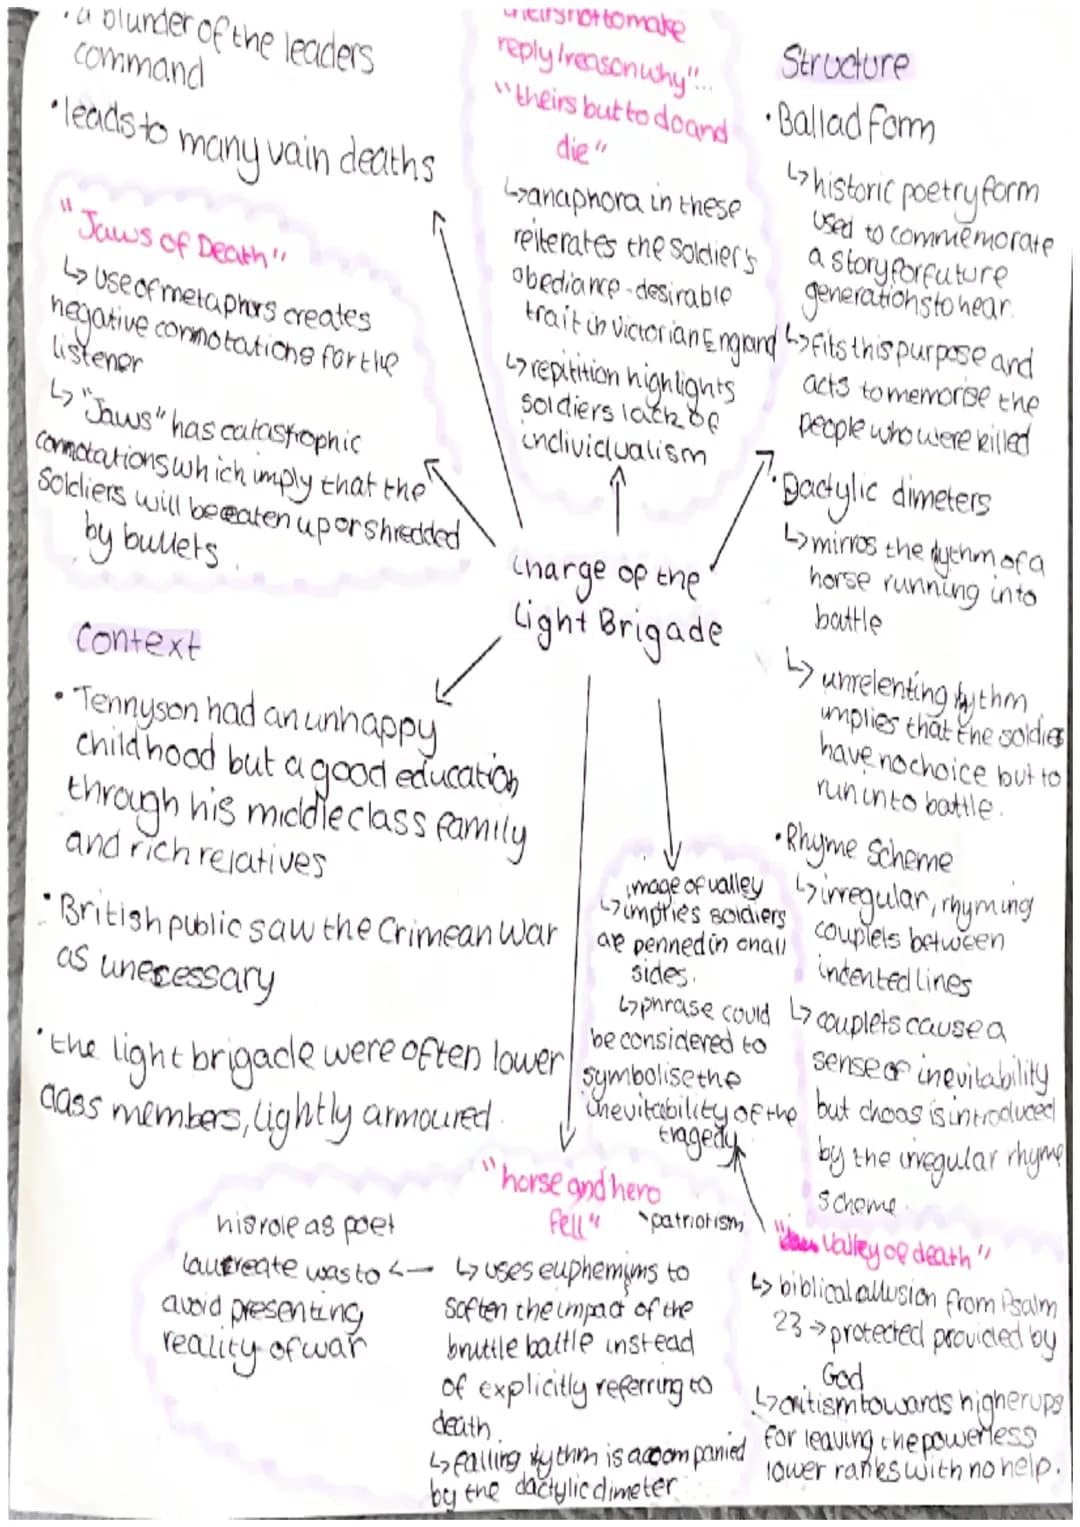 · a blunder of the leaders
command
· leads to many vain deaths
"Jaws of Death"
↳ use of metaphors creates
negative connotations for the
listener
↳ "Jaws" has catastrophic
connotations which imply that the
Soldiers will be eaten up or shredded
by bullets.
theirs not to make
reply/reason why"...
"theirs but to do and
die"
↳ anaphora in these
reiterates the soldier's
obediance - desirable
trait in Victorian England
↳ repitition highlights
soldiers lack of
individualism
Structure
· Ballad form
↳ historic poetry form
used to commemorate
a story for future
generations to hear.
↳ fits this purpose and
acts to memorise the
people who were killed
· Dactylic dimeters
↳ mirros the rythm of a
horse running into
battle
↳ unrelenting rythm
implies that the soldies
have no choice but to
run into battle.
· Rhyme Scheme
↳ irregular, rhyming
couplets between
indented lines
↳ couplets cause a
sense of inevitability
but choas is introduced
by the irregular rhyme
scheme.
Charge of the
Light Brigade
Context
· Tennyson had an unhappy
childhood but a good education
through his middle class family
and rich relatives
· British public saw the Crimean War
as unecessary
· the light brigade were often lower
class members, lightly armoured.
image of valley
↳ impties soldiers
are penned in on all
sides.
↳ phrase could
be considered to
symbolise the
inevitability of the
tragedy
"horse and hero
fell"
patriotism
↳ uses euphemisms to
soften the impact of the
bruttle battle instead
of explicitly referring to
death.
↳ falling rythm is accompanied
by the dactylic dimeter
his role as poet
laureate was to
avoid presenting
reality of war
"valley of death"
↳ biblical allusion from Psalm
23 → protected provided by
God
↳ critism towards higher ups
for leaving the powerless
lower ranks with no help.